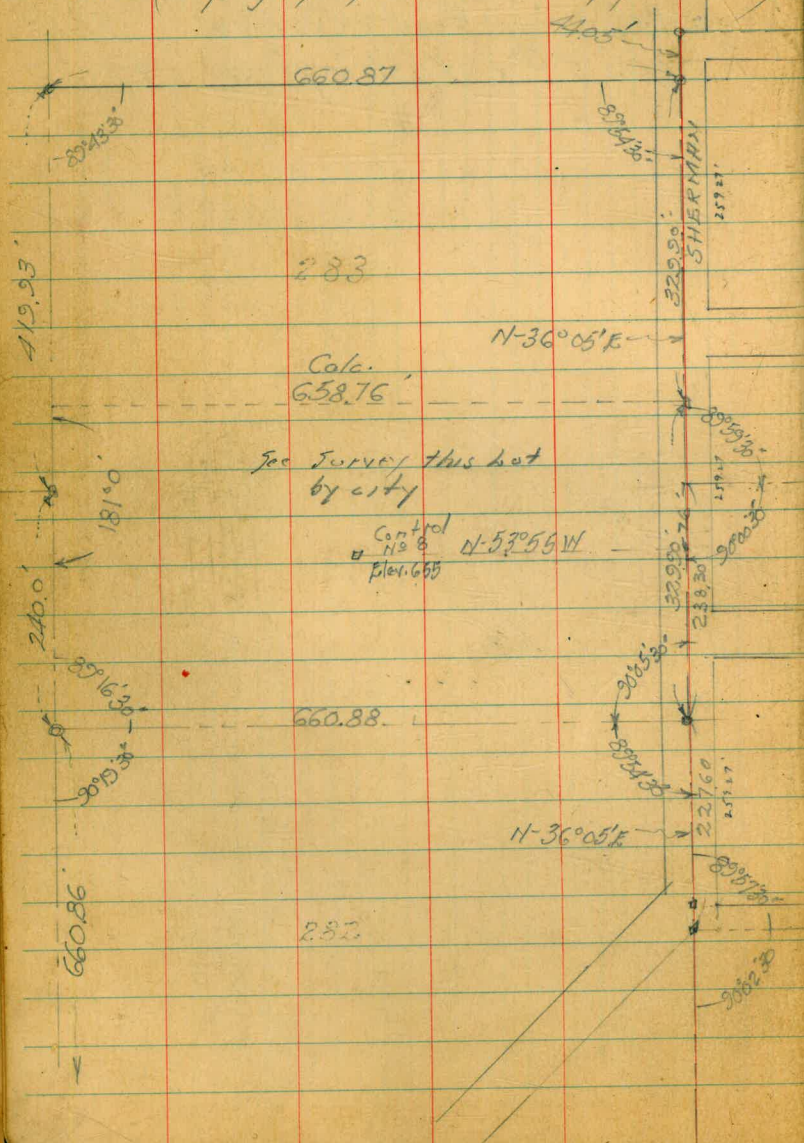 44.05'
660.87
89°43'30"
89°54'30"
SHERMAN
259.27'
329.90'
419.93'
283
N-36°05'E
Calc.
658.76'
89°59'30"
See Survey this Lot
by city
181.0'
259.27
Control
No 8
Elev. 655
N-53°55'W
90°00'30"
329.90'
238.30'
240.0'
90°05'30"
89°16'30"
660.88
90°19'30"
89°54'30"
227.60
259.27'
N-36°05'E
89°57'30"
660.86'
282
90°02'30"